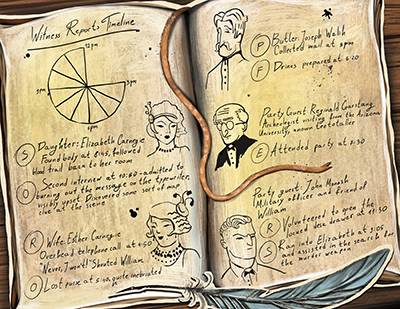 Witness Reports Timeline
12pm
3pm
6pm
S
Daughter: Elizabeth Carnegie
Found body at 8:45, followed
blood trail back to her room
O
Second interview at 10:40 - admitted to
burning of the message on the typewriter,
visibly upset. Discovered some sort of map
clue at the scene
R
Wife: Esther Carnegie
Overhead telephone call at 4:50
"Never, I won't!" Shouted William
O
Lost purse at 5:40, quite inebriated
P
Butler Joseph Walsh
Collected mail at 3pm
F
Drinks prepared at 6:20
Party Guest Reginald Guestang
Archeologist visiting from the Arizona
University, known teetotaller
E
Attended party at 5:30
Party guest: John Marsh
Military officer and friend of
William
R
Volunteered to open the
jammed desk drawer at 11:30
S
Ran into Elizabeth at 5:05
and assisted in the search for
the murder weapon